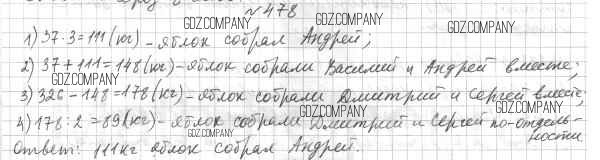 №478
GDZ.COMPANY GDZ.COMPANY GDZ.COMPANY
1) 37·3=111(кг) – яблок собрал Андрей;
2) 37+111=148(кг) – яблок собрали Василий и Андрей вместе;
GDZ.COMPANY
3) 326–148=178(кг) – яблок собрали Дмитрий и Сергей вместе;
GDZ.COMPANY GDZ.COMPANY
4) 178:2=89(кг) – яблок собрали Дмитрий и Сергей по-отдель-
GDZ.COMPANY
ности
Ответ: 111кг яблок собрал Андрей.